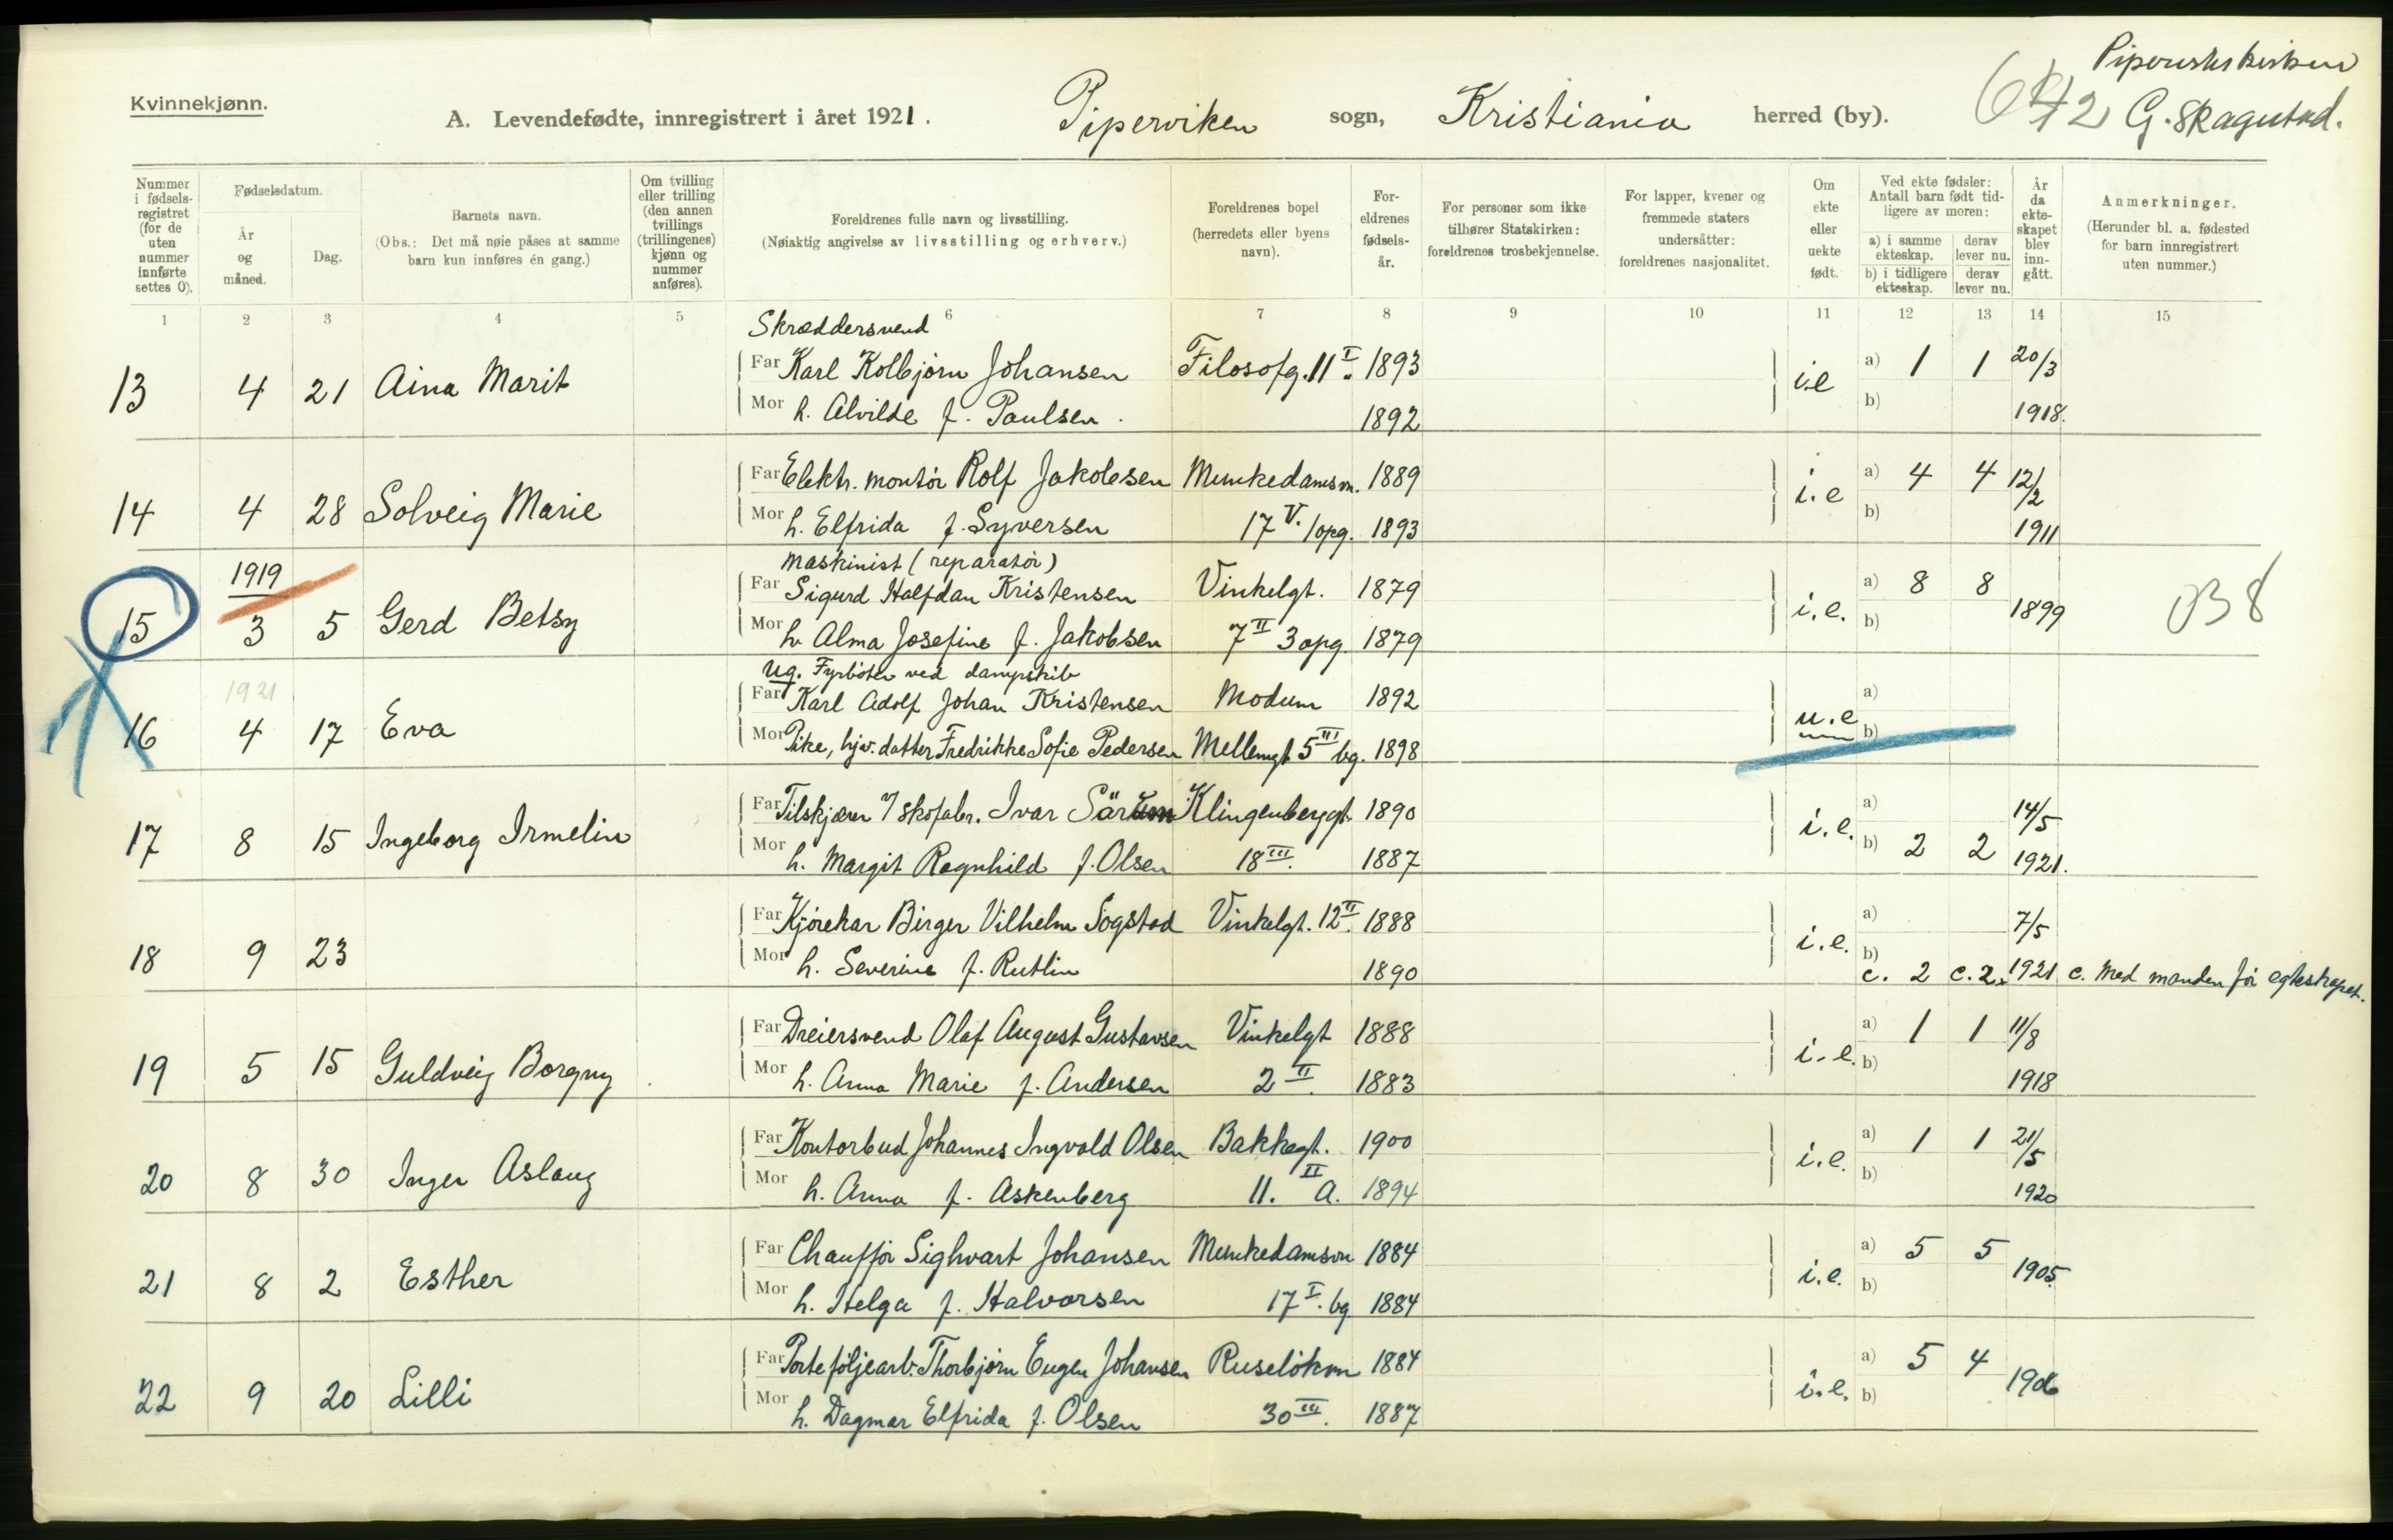 Kvinnekjønn.
A. Levendefødte, innregistrert i året 1921.
Piperviken sogn, Kristiania herred (by).
G. Skagestad.
Nummer i fødselsregistret (for de uten nummer innførte settes 0).
Fødselsdatum.
År og måned.
Dag.
Barnets navn.
(Obs.: Det må nøie påses at samme barn kun innføres én gang.)
Om tvilling eller trilling (den annen tvillings (trillingenes) kjønn og nummer anføres).
Foreldrenes fulle navn og livsstilling.
(Nøiaktig angivelse av livsstilling og erhverv.)
Foreldrenes bopel (herredets eller byens navn).
Foreldrenes fødselsår.
For personer som ikke tilhører Statskirken: foreldrenes trosbekjennelse.
For lapper, kvener og fremmede staters undersåtter: foreldrenes nasjonalitet.
Om ekte eller uekte født.
Ved ekte fødsler: Antall barn født tidligere av moren:
a) i samme ekteskap. derav lever nu.
b) i tidligere ekteskap. derav lever nu.
År da ekteskapet blev inngått.
Anmerkninger.
(Herunder bl. a. fødested for barn innregistrert uten nummer.)
1 2 3 4 5 6 7 8 9 10 11 12 13 14 15
Skræddersvend
13 4 21 Aina Marit Far Karl Kolbjørn Johansen Filosofg. 11 I. 1893 i.e a) 1 1 20/3
Mor h. Alvilde f. Paulsen. 1892 b) 1918.
14 4 28 Solveig Marie Far Elektr. montør Rolf Jakobsen Munkedamsv. 1889 i.e a) 4 4 12/2
Mor h. Elfrida f. Syversen 17 V. 1opg. 1893 b) 1911
1919 maskinist (reparatør)
15 3 5 Gerd Betsy Far Sigurd Halfdan Kristensen Vinkelgt. 1879 i.e. a) 8 8 1899
Mor h. Alma Josefine f. Jakobsen 7 II 3 opg. 1879 b)
1921 Ug. Fyrbøter ved dampskib
16 4 17 Eva Far Karl Adolf Johan Kristensen Modum 1892 u.e a)
Mor Pike, hjv. datter Fredrikke Sofie Pedersen Mellemgt 5 III bg. 1898 b)
17 8 15 Ingeborg Irmelin Far Tilskjærer v/ skofabr. Ivar Klingenberggt. 1890 i.e. a) 14/5
Mor h. Margit Ragnhild f. Olsen 18 III. 1887 b) 2 2 1921.
18 9 23 Far Kjørekar Birger Vilhelm Sogstad Vinkelgt. 12 II. 1888 i.e. a) 7/5
Mor h. Severine f. Rutlin 1890 b) c. 2 c. 2. 1921 c. Med manden før egteskapet.
19 5 15 Guldveig Borgny Far Dreiersvend Olaf August Gustavsen Vinkelgt 1888 i.e. a) 1 1 11/8
Mor h. Anna Marie f. Andersen 2 II. 1883 b) 1918
20 8 30 Inger Aslaug Far Kontorbud Johannes Ingvald Olsen Bakkegt. 1900 i.e. a) 1 1 21/5
Mor h. Anna f. Askenberg 11. II A. 1894 b) 1920
21 8 2 Esther Far Chauffør Sighvart Johansen Munkedamsv 1884 i.e. a) 5 5 1905.
Mor h. Helga f. Halvorsen 17 I. bg 1884 b)
22 9 20 Lilli Far Porteføljearb. Thorbjørn Eugen Johansen Ruseløkvn 1884 i.e. a) 5 4 1906
Mor h. Dagmar Elfrida f. Olsen 30 III. 1887 b)